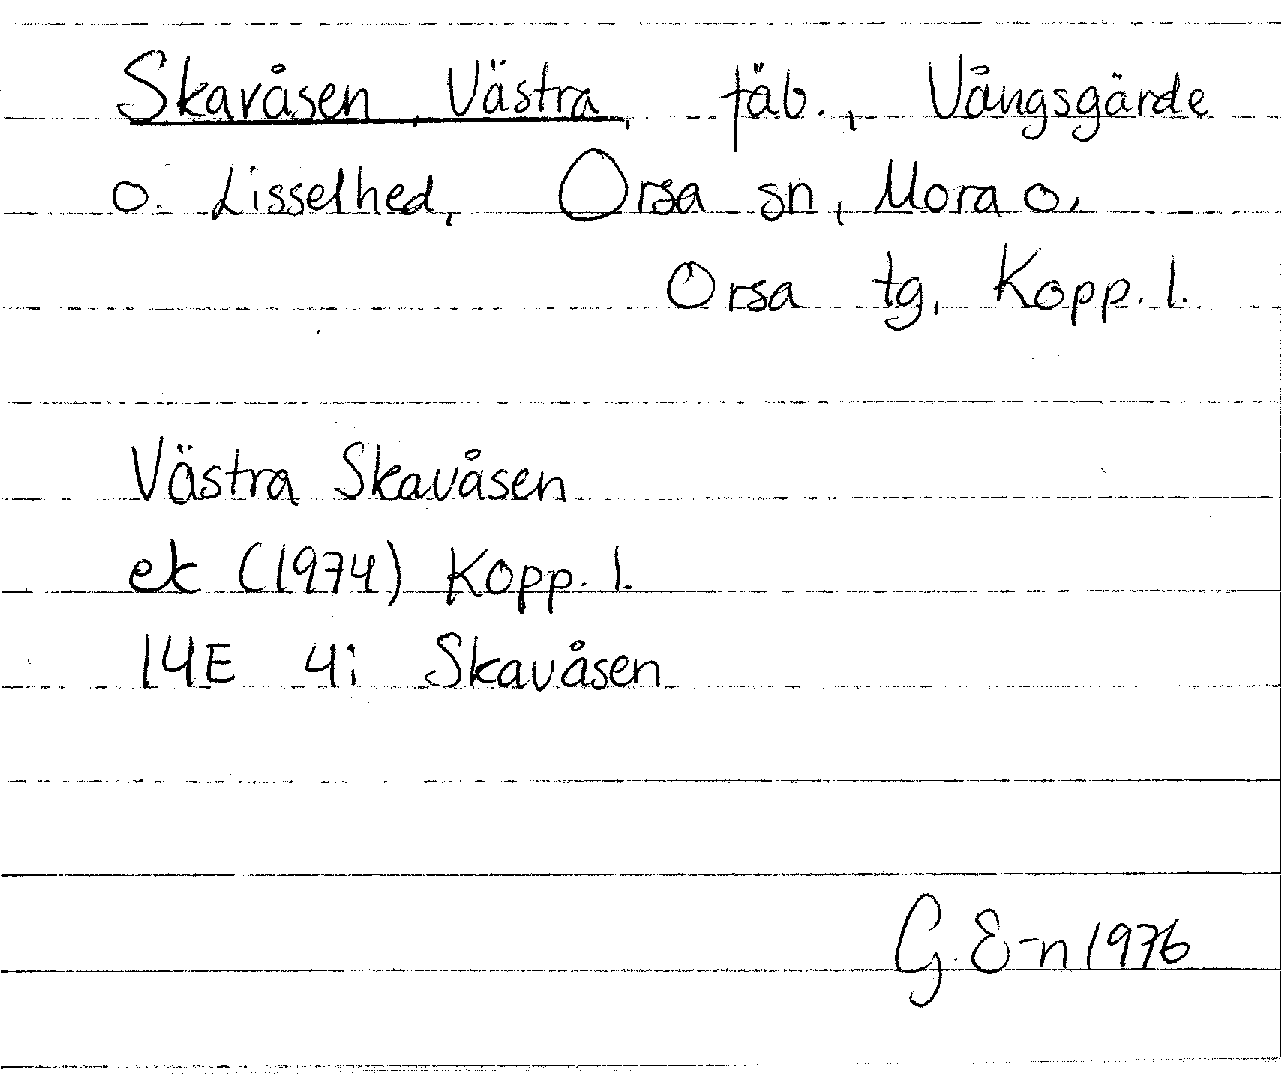 Skavåsen, Västra, fäb., Vångsgärde
o. Lisselhed, Orsa sn, Mora o.
Orsa tg, Kopp. l.
Västra Skavåsen
ek (1974) Kopp. l.
14E 4i Skavåsen
G. E-n 1976